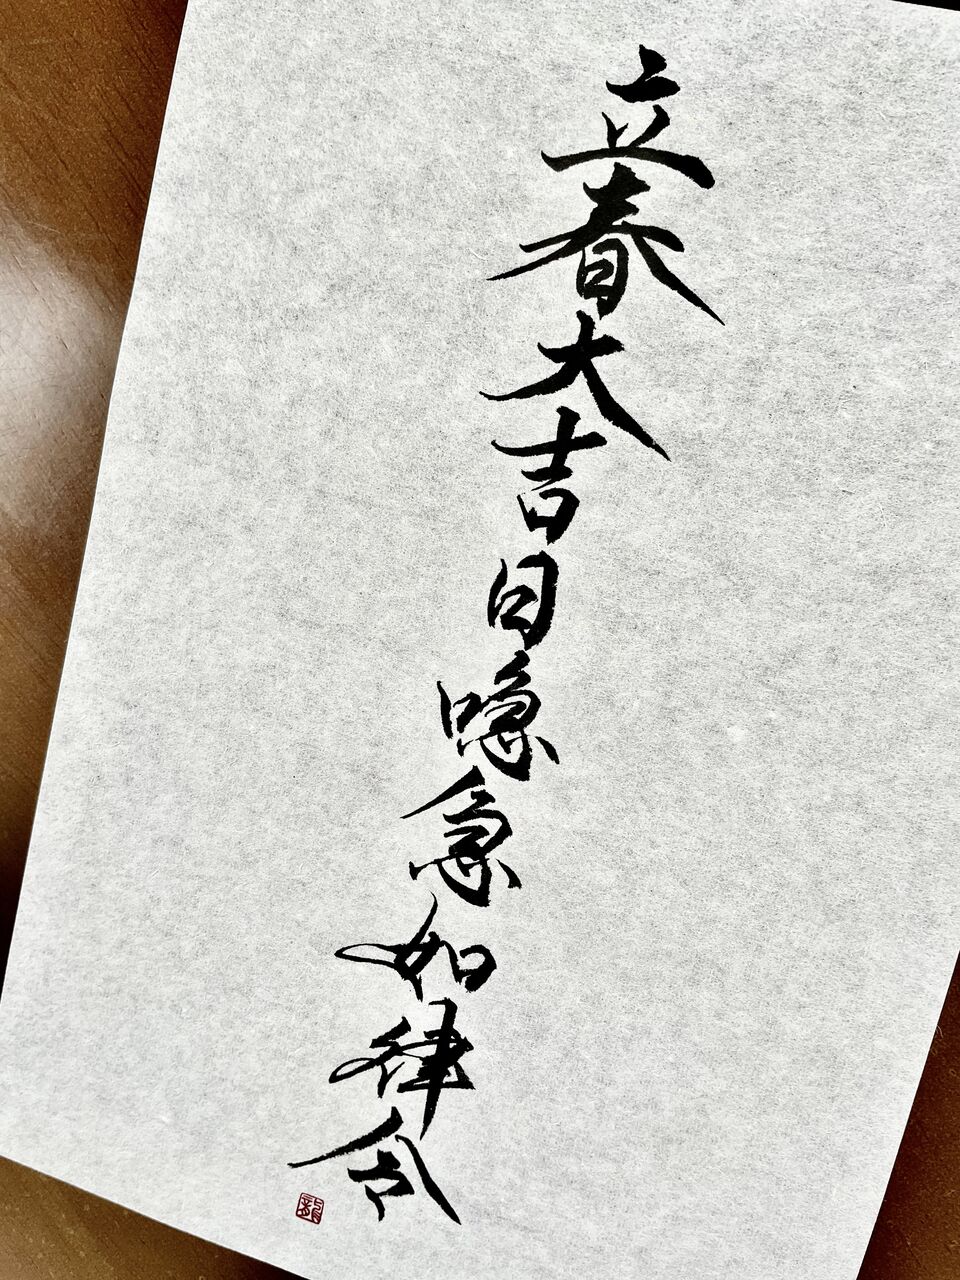 立春大吉日喼急如律令
龍